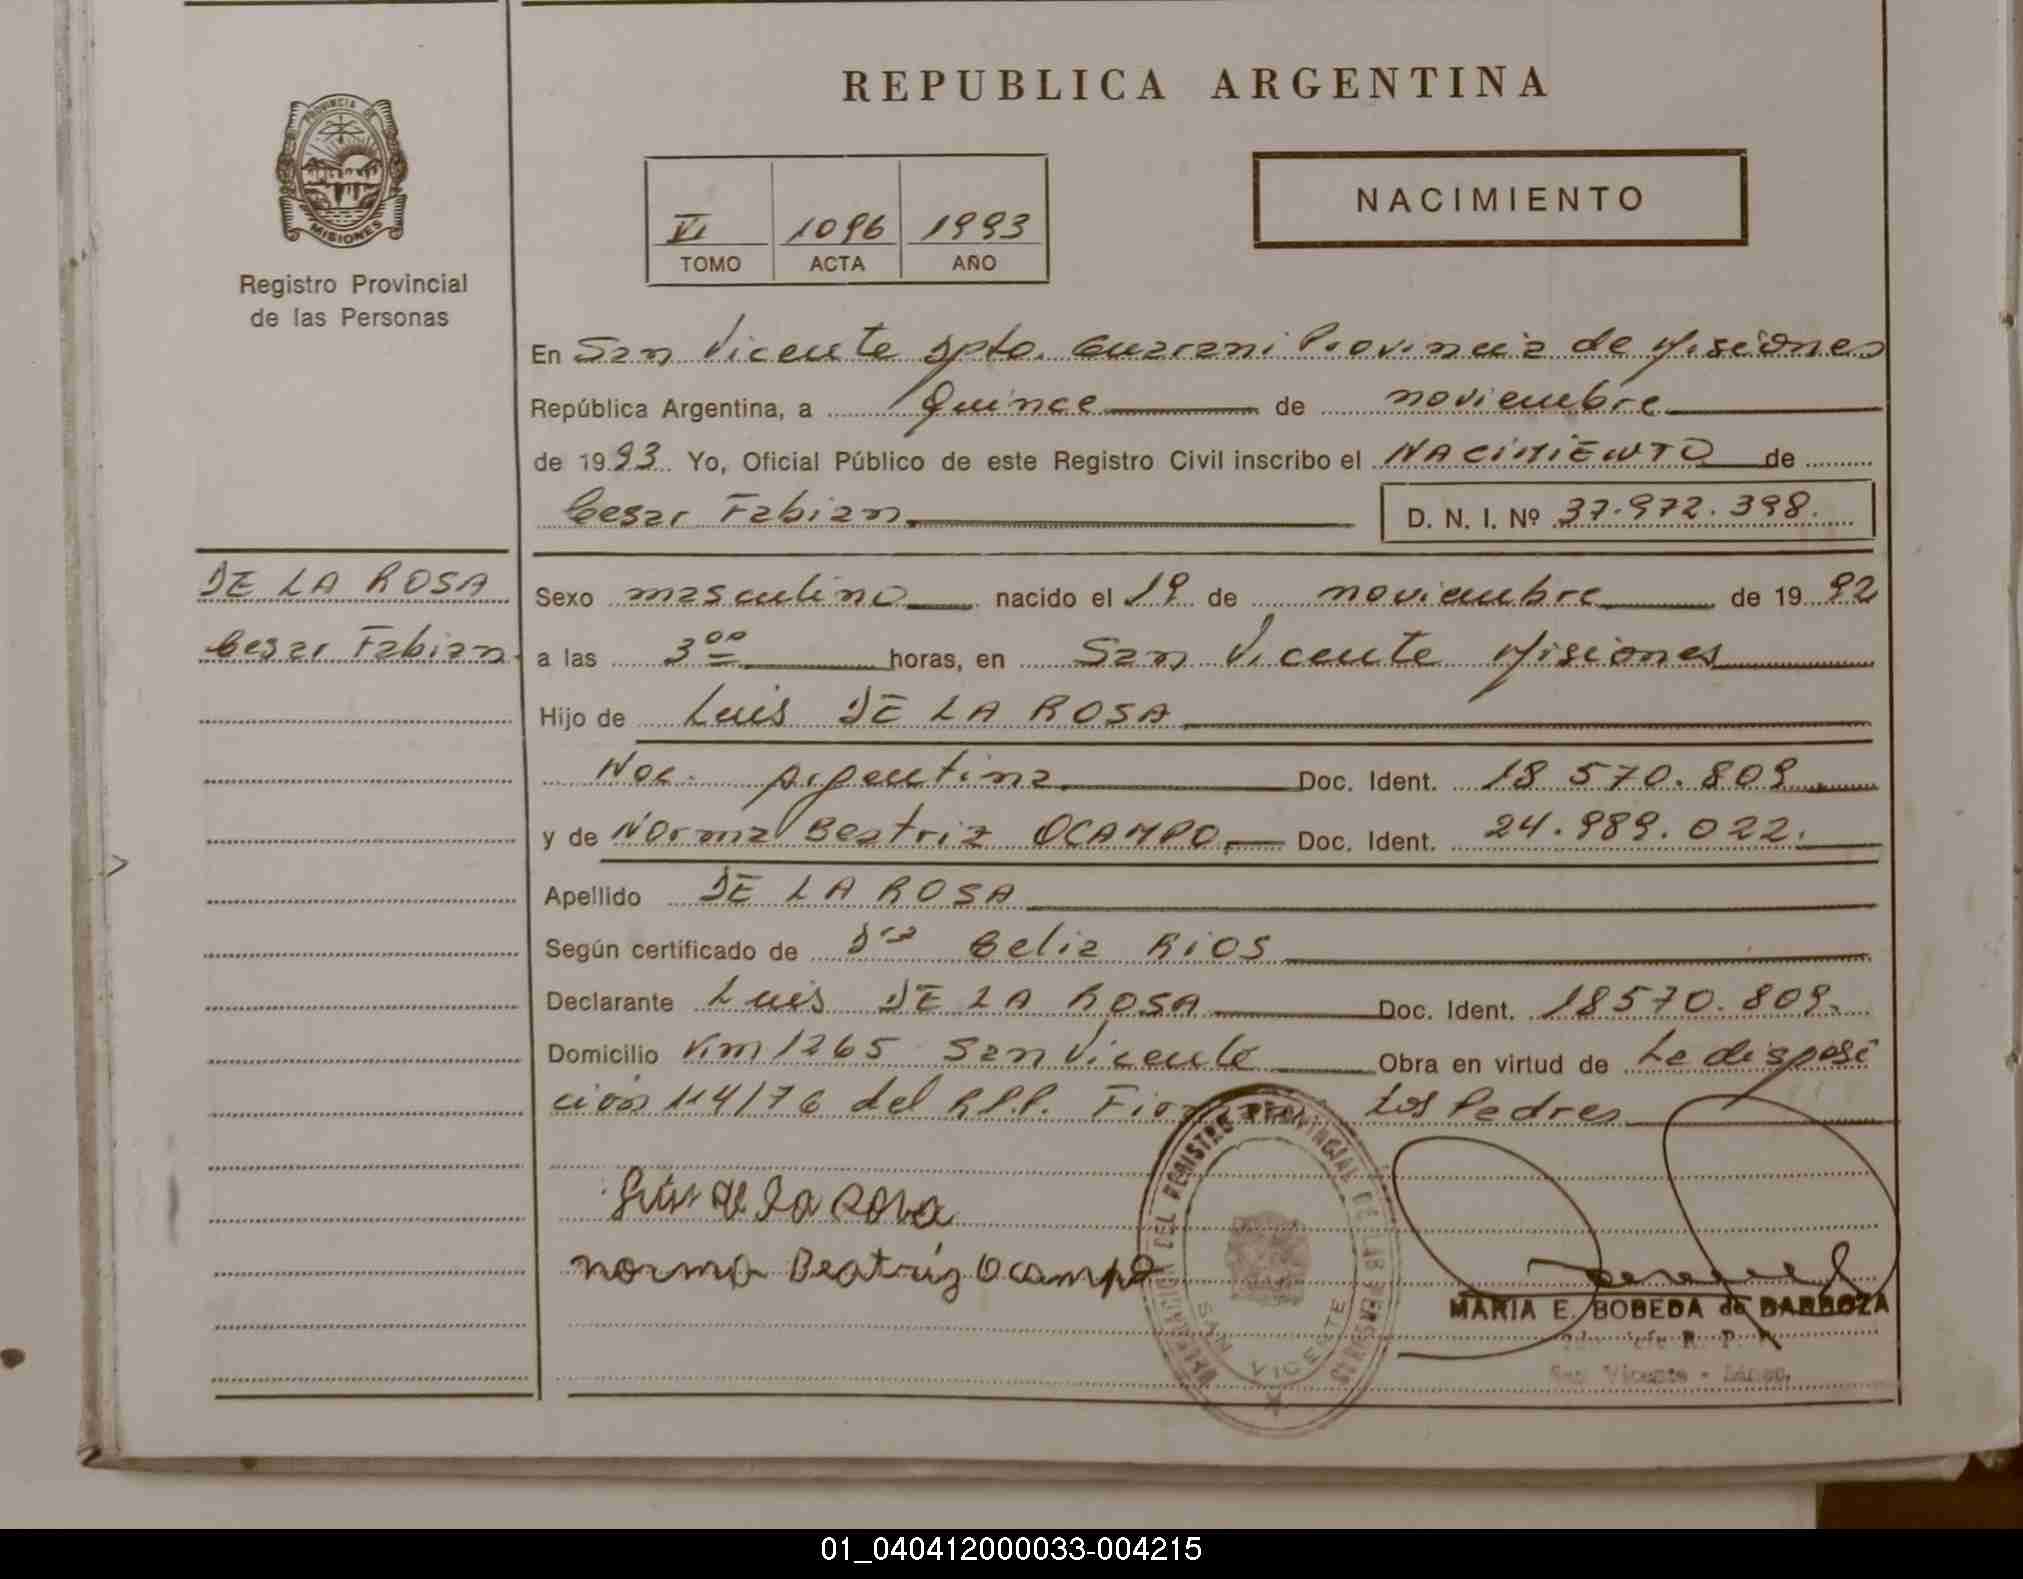 REPUBLICA ARGENTINA
PROVINCIA DE
MISIONES
Registro Provincial
de las Personas
NACIMIENTO
VI 1096 1993
TOMO ACTA AÑO
En San Vicente Dpto. Guarani Provincia de Misiones
República Argentina, a Quince de noviembre
de 1993 Yo, Oficial Público de este Registro Civil inscribo el NACIMIENTO de
Cesar Fabian D. N. I. Nº 37.972.398.
DE LA ROSA
Cesar Fabian
Sexo masculino nacido el 19 de noviembre de 1992
a las 3 00 horas, en San Vicente Misiones
Hijo de Luis DE LA ROSA
Nac. Argentina Doc. Ident. 18 570.809
y de Norma Beatriz OCAMPO, Doc. Ident. 24.989.022.
Apellido DE LA ROSA
Según certificado de Dra Celia RIOS
Declarante Luis DE LA ROSA Doc. Ident. 18570.809.
Domicilio Km 1265 San Vicente Obra en virtud de La disposi
ción 114/76 del R.P.P. Los Padres
Luis de la Rosa
norma Beatriz Ocampo
DEL REGISTRO PROVINCIAL DE LAS PERSONAS
SAN VICENTE
MARIA E. BOBEDA de BARBOZA
R. P.
San Vicente -
01_040412000033-004215